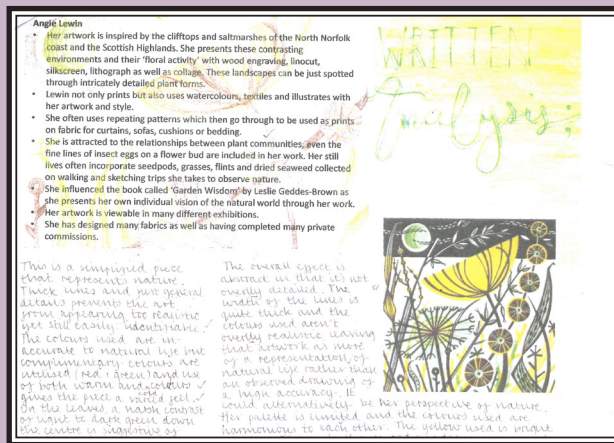 Angie Lewin
• Her artwork is inspired by the clifftops and saltmarshes of the North Norfolk
coast and the Scottish Highlands. She presents these contrasting
environments and their 'floral activity' with wood engraving, linocut,
silkscreen, lithograph as well as collage. These landscapes can be just spotted
through intricately detailed plant forms.
• Lewin not only prints but also uses watercolours, textiles and illustrates with
her artwork and style.
• She often uses repeating patterns which then go through to be used as prints
on fabric for curtains, sofas, cushions or bedding.
• She is attracted to the relationships between plant communities, even the
fine lines of insect eggs on a flower bud are included in her work. Her still
lives often incorporate seedpods, grasses, flints and dried seaweed collected
on walking and sketching trips she takes to observe nature.
• She influenced the book called 'Garden Wisdom' by Leslie Geddes-Brown as
she presents her own individual vision of the natural world through her work.
• Her artwork is viewable in many different exhibitions.
• She has designed many fabrics as well as having completed many private
commissions.
WRITTEN
Analysis:
This is a simplified piece
that represents nature.
Thick lines and just general
details prevents the art
from appearing too realistic
yet still easily identifiable.
The colours used are in-
accurate to natural life but
complimentary colours are
utilised (red + green) and use
of both warm and cold colours
gives the piece a varied feel.
On the leaves, a harsh contrast
of light to dark green down
the centre is suggestive of
The overall effect is
abstract in that it's not
overtly detailed. The
width of the lines is
quite thick and the
colours used aren't
overtly realistic leaving
that artwork as more
of a representation of
natural life rather than
an observed drawing of
a high accuracy. It
could alternatively be her perspective of nature.
Her palette is limited and the colours used are
harmonious to each other. The yellow used is bright